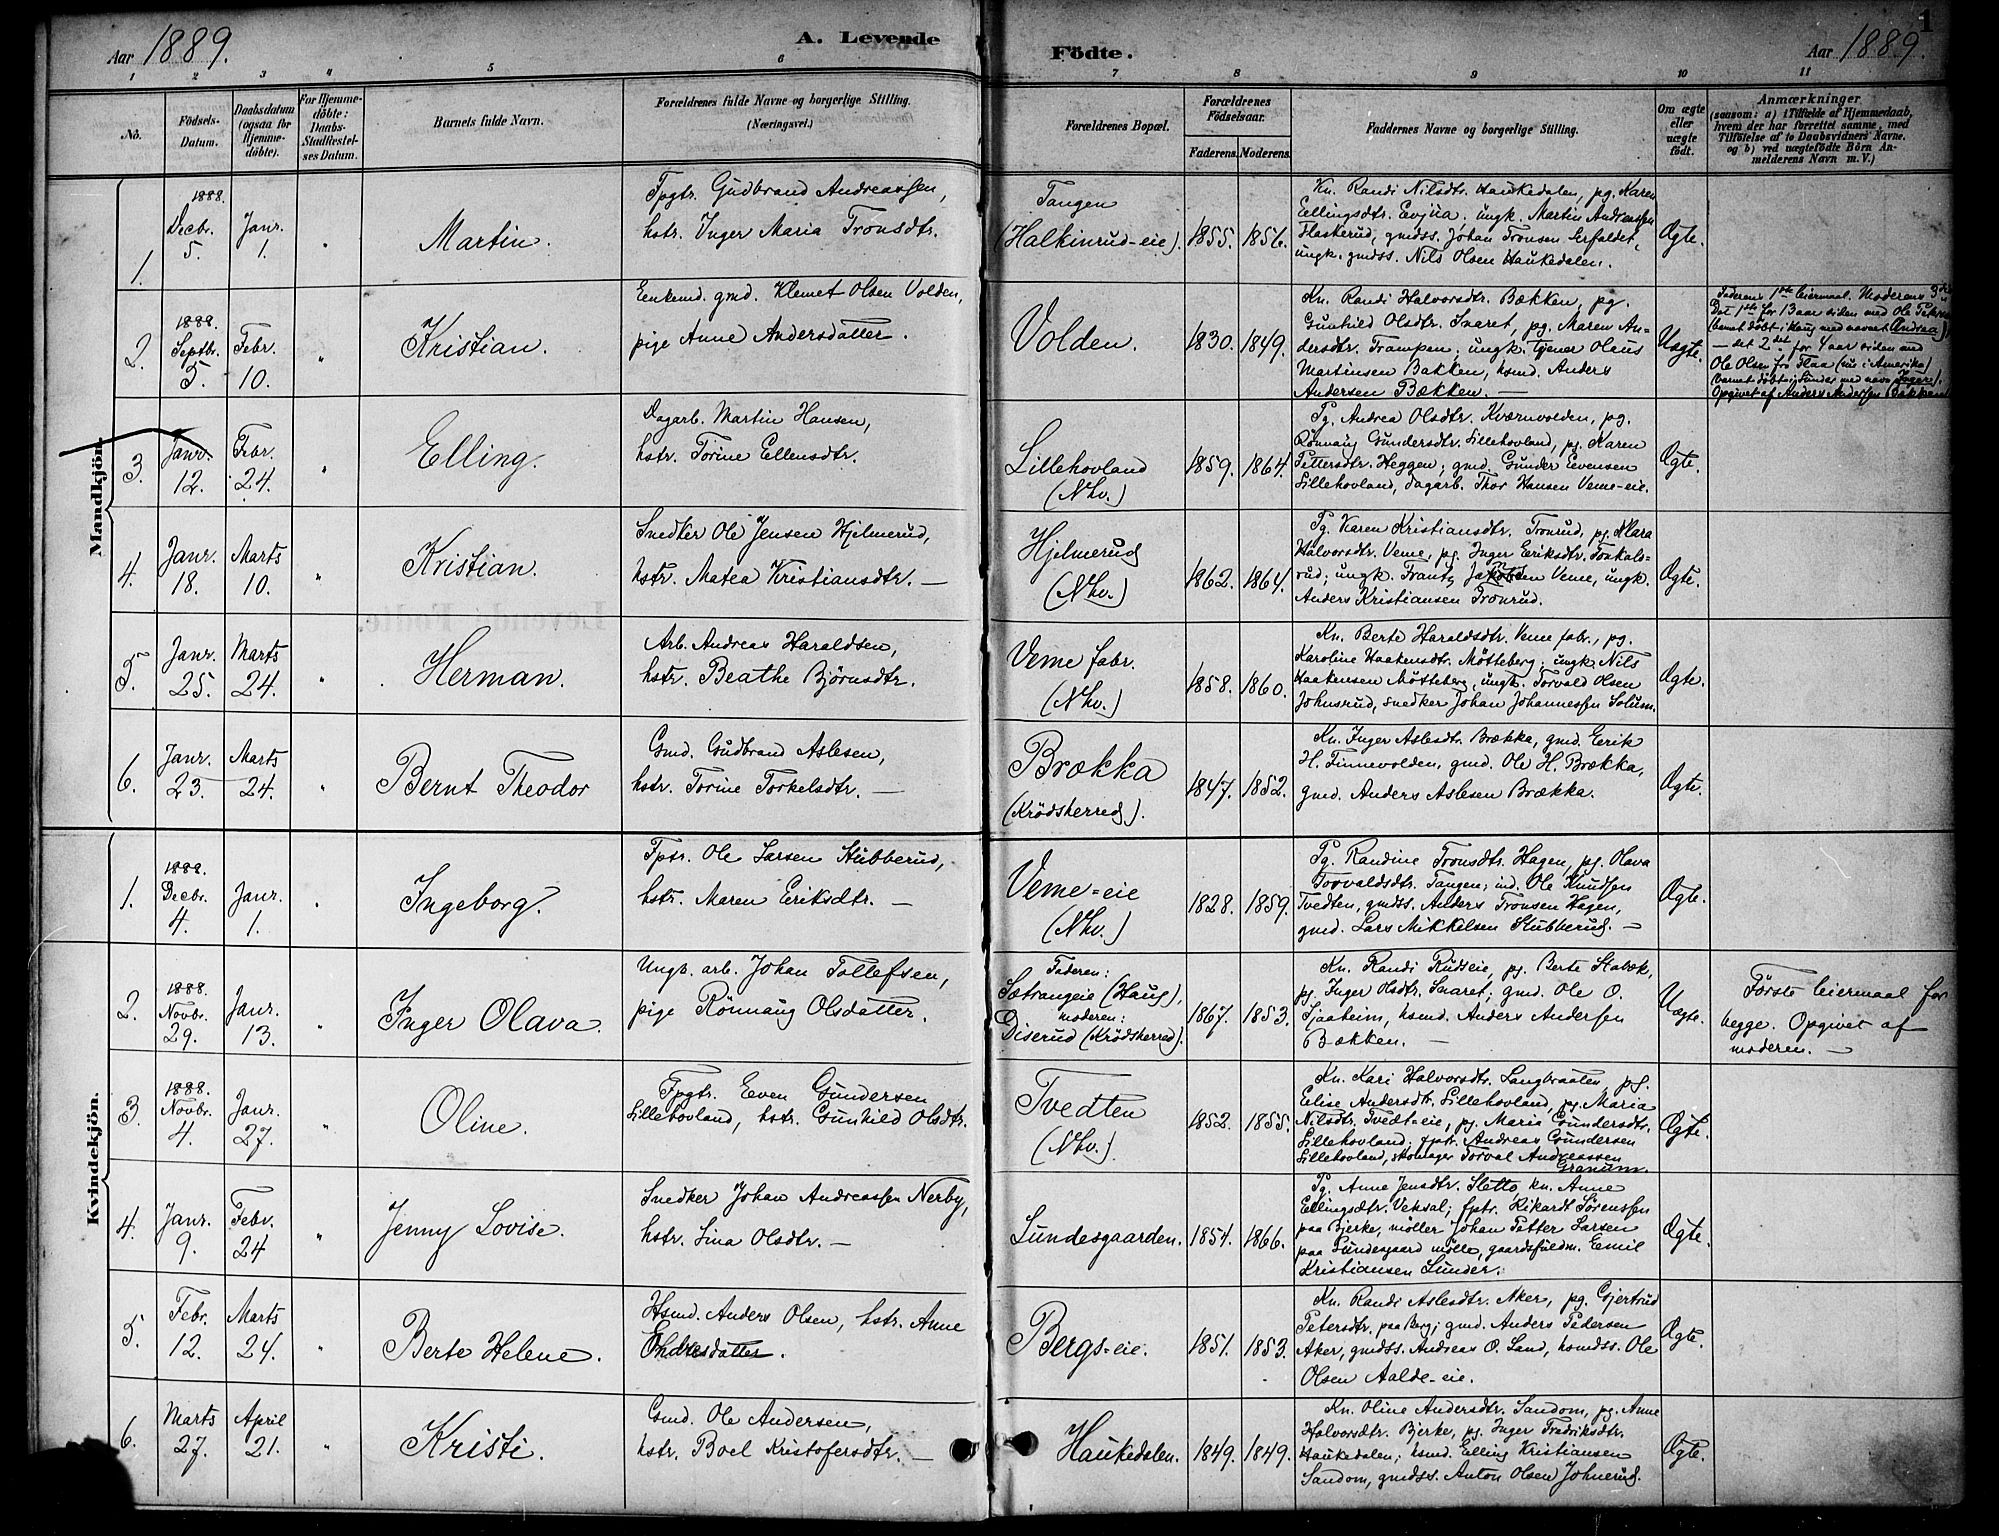 1
Aar 1889.
A. Levende Födte.
Aar 1889.
1 2 3 4 5 6 7 8 9 10 11
No.
Födsels-
Datum.
Daabsdatum
(ogsaa for
Hjemme-
döbte).
For Hjemme-
döbte:
Daabs-
Stadfæstel-
ses Datum.
Barnets fulde Navn.
Forældrenes fulde Navne og borgerlige Stilling.
(Næringsvei.)
Forældrenes Bopæl.
Forældrenes
Födselsaar.
Faderens. Moderens.
Faddernes Navne og borgerlige Stilling.
Om ægte
eller
uægte
födt.
Anmærkninger
(saasom: a) i Tilfælde af Hjemmedaab,
hvem der har forrettet samme, med
Tilföielse af to Daabsvidners Navne,
og b) ved uægtefödte Börn An-
melderens Navn m. V.)
Mandkjön.
1.
1888.
Decbr.
5.
Janr.
1.
"
Martin.
Fpgtr. Gudbrand Andreassen,
hstr. Inger Maria Tronsdtr.
Tangen
(Halkinrud-eie).
1855. 1856.
Kn. Randi Nilsdtr. Haukedalen, pg. Karen
Ellingsdtr. Evjua. ungk. Martin Andreassen
Flaskerud, gmdss. Johan Tronsen
ungk. gmdss. Nils Olsen Haukedalen.
Ægte.
2.
1888.
Septbr.
5.
Febr.
10.
"
Kristian.
Enkemd. gmd. Klemet Olsen Volden,
pige Anne Andersdatter.
Volden.
1830. 1849.
Kn. Randi Halvorsdtr. Bækken, pg.
Gunhild Olsdtr. Snaret, pg. Maren An-
dersdtr. Trampen; ungk. tjener Olaus
Martinsen Bakken, hsmd. Anders
Andersen Bækken. —
Uægte.
Faderens 1ste leiermaal. Moderens 3die
Det 1ste for 13 aar siden med Ole
(barnet døbt i Haug med navnet Andrea)
— det 2det for 4 aar siden med
Ole Olsen fra Flaa (nu i Amerika)
barnet døbt i Lunder med navn Inger).
Opgivet af Anders Andersen Bækken
3.
Janr.
12.
Febr.
24.
"
Elling.
Dagarb. Martin Hansen,
hstr. Torine Ellensdtr.
Lillehovland
(Nhv.)
1859. 1864.
Pg. Andrea Olsdtr. Kværnvolden, pg.
Rønnaug Gundersdtr. Lillehovland, pg. Karen
Pettersdtr. Heggen; gmd. Gunder Evensen
Lillehovland, dagarb. Thor Hansen Veme-eie.
Ægte.
4.
Janr.
18.
Marts
10.
"
Kristian.
Snedker Ole Jensen Hjelmerud,
hstr. Matea Kristiansdtr. —
Hjelmerud
(Nhv.)
1862. 1864.
Pg. Karen Kristiansdtr. Tronrud, pg. Klara
Halvorsdtr. Veme, pg. Inger Eriksdtr.
rud; ungk. Frantz Veme, ungk.
Anders Kristiansen Tronrud.
Ægte.
5.
Janr.
25.
Marts
24.
"
Herman.
Arb. Andreas Haraldsen,
hstr. Beathe Björnsdtr.
Veme fabr.
(Nhv.)
1858. 1860.
Kn. Berte Haraldsdtr. Veme fabr., pg.
Karoline Haakensdtr. Møtteberg; ungk. Nils
Haakensen Møtteberg, ungk. Torvald Olsen
Johnsrud, snedker Johan Johannessen Solum.
Ægte.
6.
Janr.
23.
Marts
24.
"
Bernt Theodor
Gmd. Gudbrand Aslesen,
hstr. Torine Torkelsdtr. —
Brækka
(Krödsherred).
1847. 1852.
Kn. Inger Aslesdtr. Brækka, gmd. Erik
H. Finnevolden, gmd. Ole H. Brækka,
gmd. Anders Aslesen Brækka.
Ægte.
Kvindekjön.
1.
1888.
Decbr.
4.
Janr.
1.
"
Ingeborg.
Fptr. Ole Larsen Stubberud,
hstr. Maren Eriksdtr. —
Veme-eie
(Nhv.)
1828. 1859.
Pg. Randine Tronsdtr. Hagen, pg. Olava
Torvaldsdtr. Tangen; ind. Ole Knudsen
Tvedten, gmdss. Anders Tronsen Hagen,
gmd. Lars Mikkelsen Stubberud. —
Ægte.
2.
1888.
Novbr.
29.
Janr.
13.
"
Inger Olava.
Ungk. arb. Johan Tollefsen,
pige Rönnaug Olsdatter.
Faderen:
Sætrangeie (Haug),
moderen:
Diserud (Krödsherred).
1867. 1853.
Kn. Randi Rudseie, pg. Berte Stabæk,
pg. Inger Olsdtr. Snaret; gmd. Ole O.
Sjaaheim, hsmd. Anders Andersen
Bækken. —
Uægte.
Første leiermaal for
begge. Opgivet af
moderen. —
3.
1888.
Novbr.
4.
Janr.
27.
"
Oline.
Fpgtr. Even Gundersen
Lillehovland, hstr. Gunhild Olsdtr.
Tvedten
(Nhv.)
1852. 1855.
Kn. Kari Halvorsdtr. Langbraaten, pg.
Elise Andersdtr. Lillehovland, pg. Maria
Nilsdtr. Tvedt-eie, pg. Maria Gundersdtr.
Lillehovland; fptr. Andreas Gundersen
Lillehovland, skomager Torval Andreassen
Granum.
Ægte.
4.
Janr.
9.
Febr.
24
"
Jenny Lovise.
Snedker Johan Andreassen Nerby,
hstr. Lina Olsdtr. —
Lundesgaarden.
1854. 1866.
Pg. Anne Jensdtr. Sletto, kn. Anne
Ellingsdtr. Veksal; fptr. Rikardt Sørenssen
paa Bjerke, møller Johan Petter Larsen
paa Lundesgaard mølle, gaardsfuldm. Emil
Kristiansen Lunder.
Ægte.
5.
Febr.
12.
Marts
24.
"
Berte Helene.
Hsmd. Anders Olsen, hstr. Anne
Endresdatter.
Bergs-eie.
1851. 1853.
Kn. Randi Aslesdtr. Aker, pg. Gjertrud
Petersdtr. paa Berg; gmd. Anders Pedersen
Aker, gmdss. Andreas O. Sand, hsmdss. Ole
Olsen Aalde-eie.
Ægte.
6.
Marts
27.
April
21.
"
Kristi.
Gmd. Ole Andersen,
hstr. Boel Kristofersdtr. —
Haukedalen.
1849. 1849.
Kn. Oline Andersdtr. Sandom, pg. Anne
Halvorsdtr. Bjerke, pg. Inger Fredriksdtr.
Haukedalen; hsmd. Elling Kristiansen
Sandom, gmdss. Anton Olsen Johnerud.
Ægte.